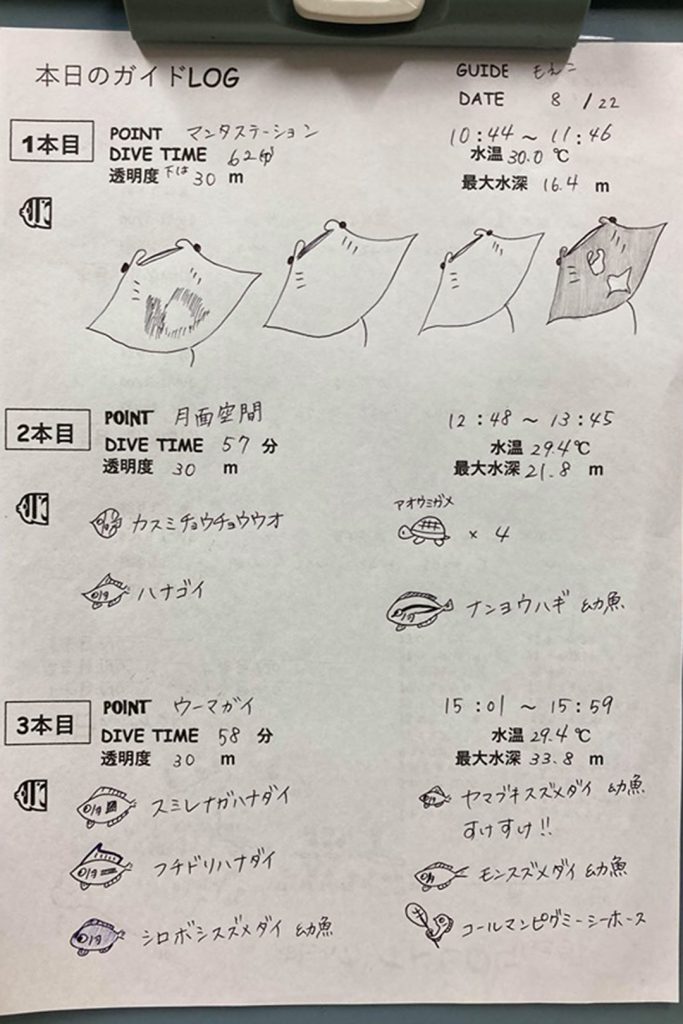 本日のガイドLOG
GUIDE もえこ
DATE 8/22
1本目
POINT マンタステーション
10:44 ～ 11:46
DIVE TIME 62分
水温 30.0 ℃
透明度 下は30 m
最大水深 16.4 m
2本目
POINT 月面空間
12:48 ～ 13:45
DIVE TIME 57 分
水温 29.4℃
透明度 30 m
最大水深 21.8 m
カスミチョウチョウウオ
アオウミガメ
× 4
ハナゴイ
ナンヨウハギ 幼魚
3本目
POINT ウーマガイ
15:01 ～ 15:59
DIVE TIME 58 分
水温 29.4℃
透明度 30 m
最大水深 33.8 m
スミレナガハナダイ
ヤマブキスズメダイ 幼魚
すけすけ!!
フチドリハナダイ
モンスズメダイ 幼魚
シロボシスズメダイ 幼魚
コールマンピグミーシーホース